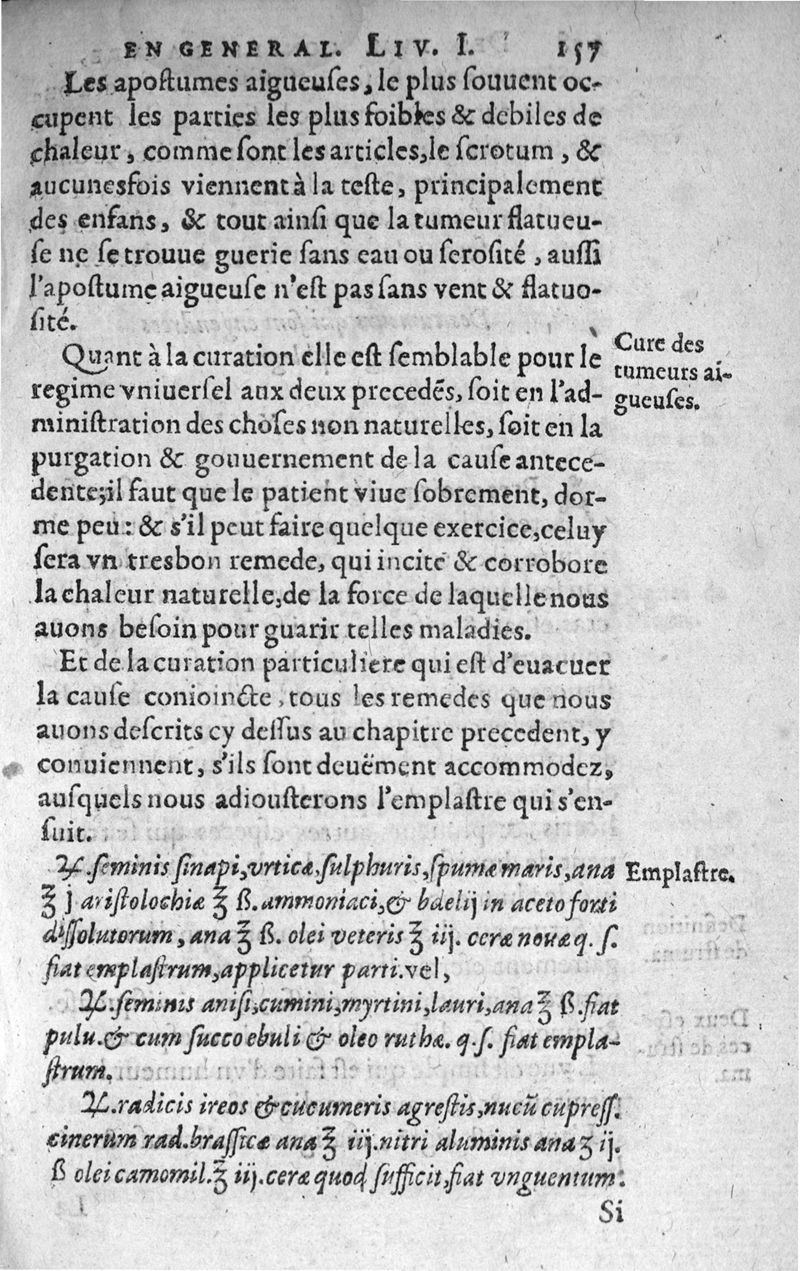 EN GENERAL. LIV. I. 157
Les apostumes aigueuſes, le plus ſouuent oc-
cupent les parties les plus foibles & debiles de
chaleur, comme ſont les articles, le ſcrotum, &
aucunesfois viennent à la teſte, principalement
des enfans, & tout ainſi que la tumeur flatueu-
ſe ne ſe trouue guerie ſans eau ou ſeroſité, auſſi
l'apoſtume aigueuſe n'eſt pas ſans vent & flatuo-
ſité.
Quant à la curation elle eſt ſemblable pour le
regime vniuerſel aux deux precedẽs, ſoit en l'ad-
miniſtration des choſes non naturelles, ſoit en la
purgation & gouuernement de la cauſe antece-
dente; il faut que le patient viue ſobrement, dor-
me peu: & s'il peut faire quelque exercice, celuy
ſera vn tresbon remede, qui incite & corrobore
la chaleur naturelle, de la force de laquelle nous
auons beſoin pour guarir telles maladies.
Cure des
tumeurs ai-
gueuſes.
Et de la curation particuliere qui eſt d'euacuer
la cauſe conioincte, tous les remedes que nous
auons deſcrits cy deſſus au chapitre precedent, y
conuiennent, s'ils ſont deuëment accommodez,
auſquels nous adiouſterons l'emplaſtre qui s'en-
ſuit.
℞. ſeminis ſinapi, vrticæ, ſulphuris, ſpumæ maris, ana
℥ j ariſtolochiæ ℥ ß. ammoniaci, & bdelij in aceto forti
diſſolutorum, ana ℥ ß. olei veteris ℥ iij. ceræ nouæ q. ſ.
fiat emplaſtrum, applicetur parti. vel,
Emplaſtre.
℞. ſeminis aniſi, cumini, myrtini, lauri, ana ℥ ß. fiat
pulu. & cum ſucco ebuli & oleo ruthæ. q. ſ. fiat empla-
ſtrum.
℞. radicis ireos & cucumeris agreſtis, nucũ cupreſſ.
cinerum rad. braſſicæ ana ℥ iij. nitri aluminis ana ʒ ij.
ß olei camomil. ℥ iij. ceræ quod ſufficit, fiat vnguentum.
Si